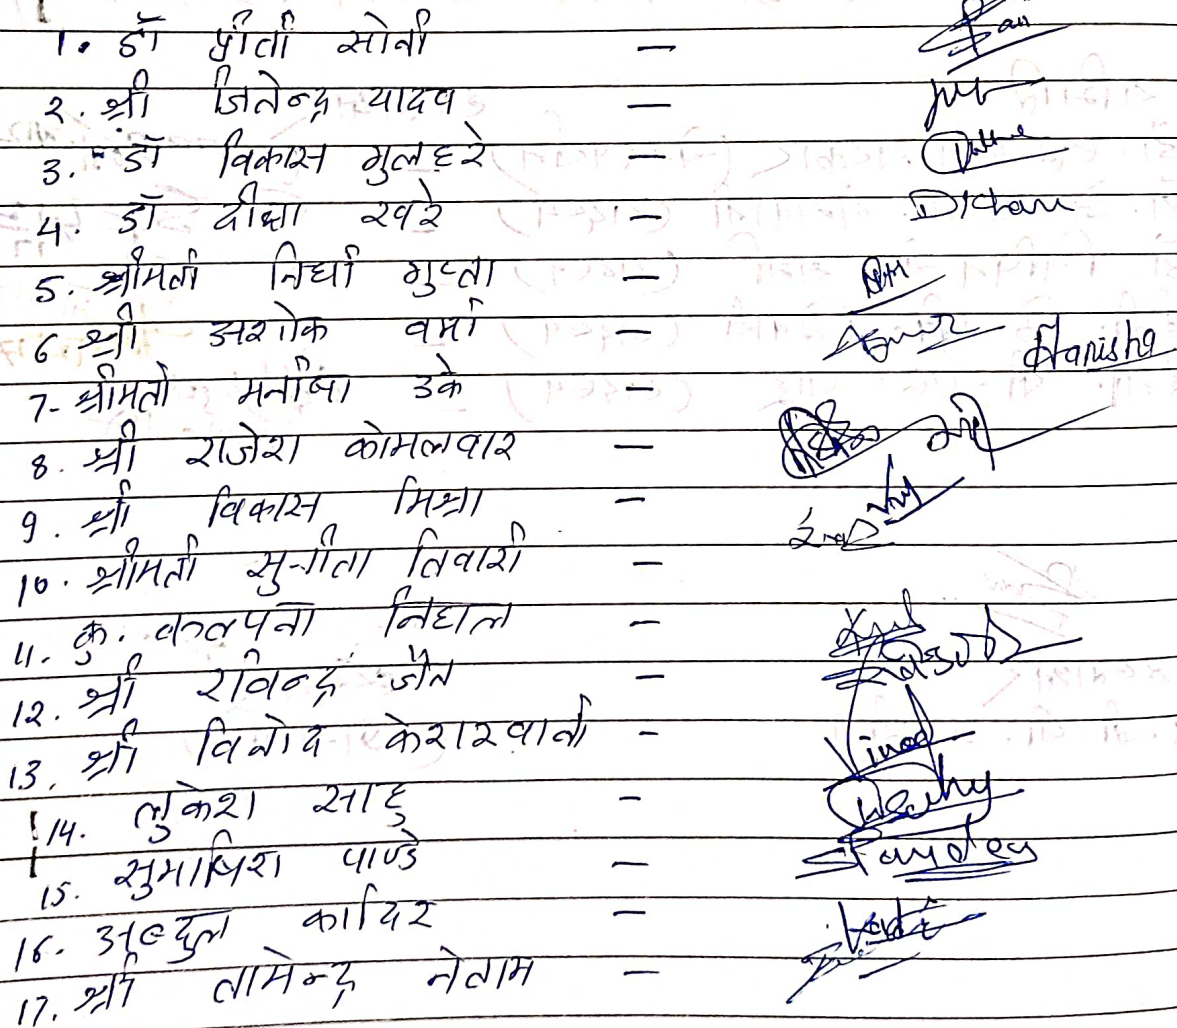 1. डॉ प्रीती सोनी -
2. श्री जितेन्द्र यादव -
3. डॉ विकास गुलहरे -
4. डॉ दीक्षा खरे - DKhare
5. श्रीमती निधी गुप्ता -
6. श्री अशोक वर्मा -
7- श्रीमती मनीषा उके - Manisha
8. श्री राजेश कोमलवार -
9. श्री विकास मिश्रा -
10. श्रीमती सुनीता तिवारी -
11. कु. कल्पना निहाल -
12. श्री रविन्द्र जैन -
13. श्री विनोद केशरवानी - Vinod
14. लुकेश साहु -
15. सुभाषिश पाण्डे - Pandey
16. अब्दुल कादिर -
17. श्री तामेन्द्र नेताम -